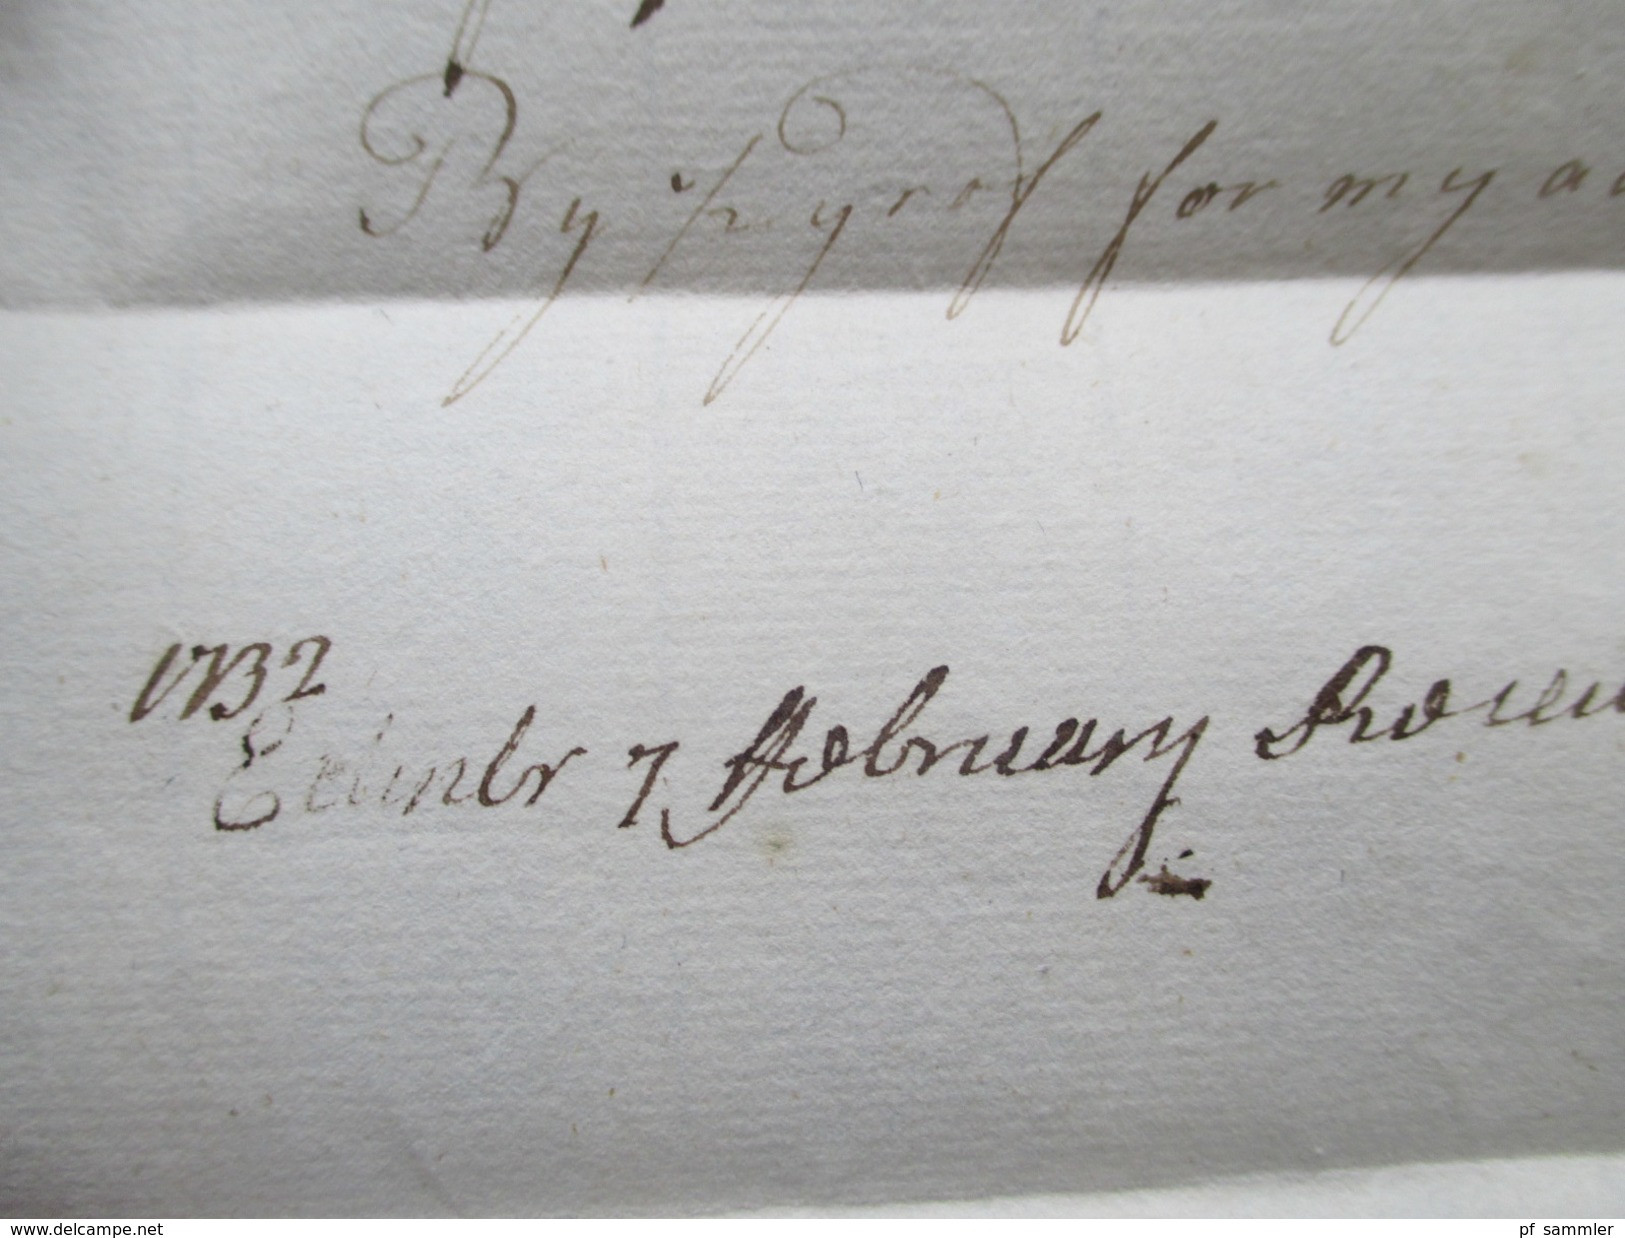 By for my
1732
Edinbr 7 ffebruary
www.delcampe.net
pf sammler